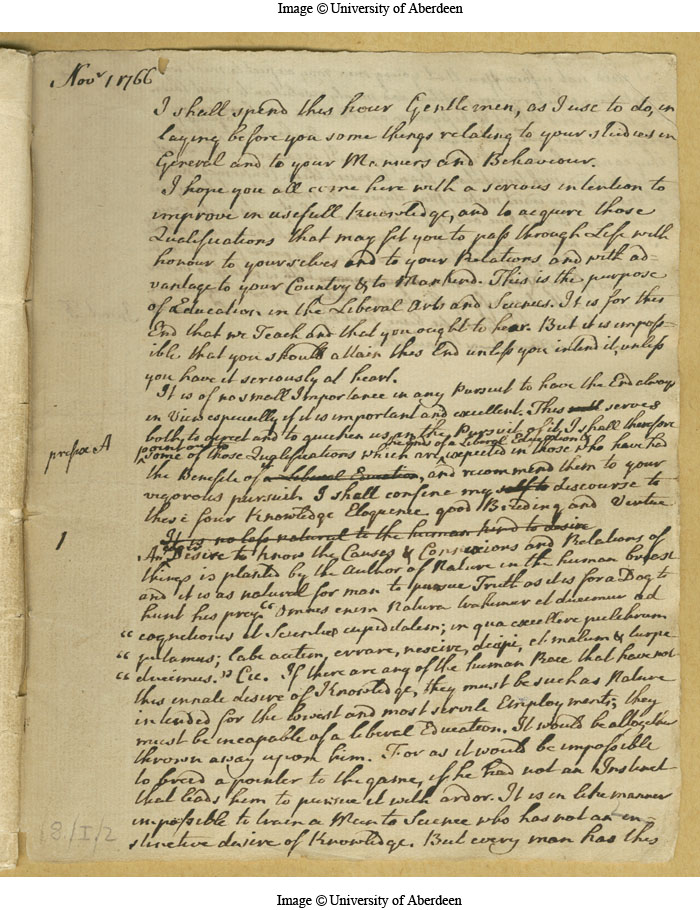 Image © University of Aberdeen
Novr 1 1766
I shall spend this hour Gentlemen, as I use to do, in
laying before you some things relating to your studies in
General and to your Manners and Behaviour.
I hope you all come here with a serious intention to
improve in usefull Knowledge, and to acquire those
Qualifications that may fit you to pass through Life with
honour to yourselves and to your Relations and with ad-
vantage to your Country & to Mankind. This is the purpose
of Education in the Liberal Arts and Sciences. It is for this
End that we Teach and that you ought to hear. But it is imposs-
ible that you should attain this End unless you intend it, unless
you have it seriously at heart.
It is of no small Importance in any Pursuit to have the End always
in View especially if it is important and excellent. This serves
both to direct and to quicken us in the Pursuit of it, I shall therefore
point out to
prefix A
some of those Qualifications which are expected in those who have had
the Benefite of a Liberal Education, and recommend them to your
vigorous pursuit. I shall confine my self to discourse to
these four Knowledge Eloquence good Breeding and Virtue
It is no less natural to the human kind to desire
1
An Desire to know the Causes & Connexions and Relations of
things is planted by the Author of Nature in the human breast
and it is as natural for man to pursue Truth as it is for a Dog to
hunt his prey. "Omnes enim Natura trahimur et ducimur ad
"cognitionis et Scientiæ cupiditatem; in qua excellere pulchrum
"putamus; labi autem, errare, nescire, decipi, et malum & turpe
"ducimus." Cic. If there are any of the human Race that have not
this innate desire of Knowledge, they must be such as Nature
intended for the lowest and most servile Employments; they
must be incapable of a liberal Education. It would be altogether
thrown away upon him. For as it would be impossible
to breed a pointer to the game, if he had not an Instinct
that leads him to pursue it with ardor. It is in like manner
impossible to train a Man to Science who has not an in-
stinctive desire of Knowledge. But every man has this
8/I/2
Image © University of Aberdeen